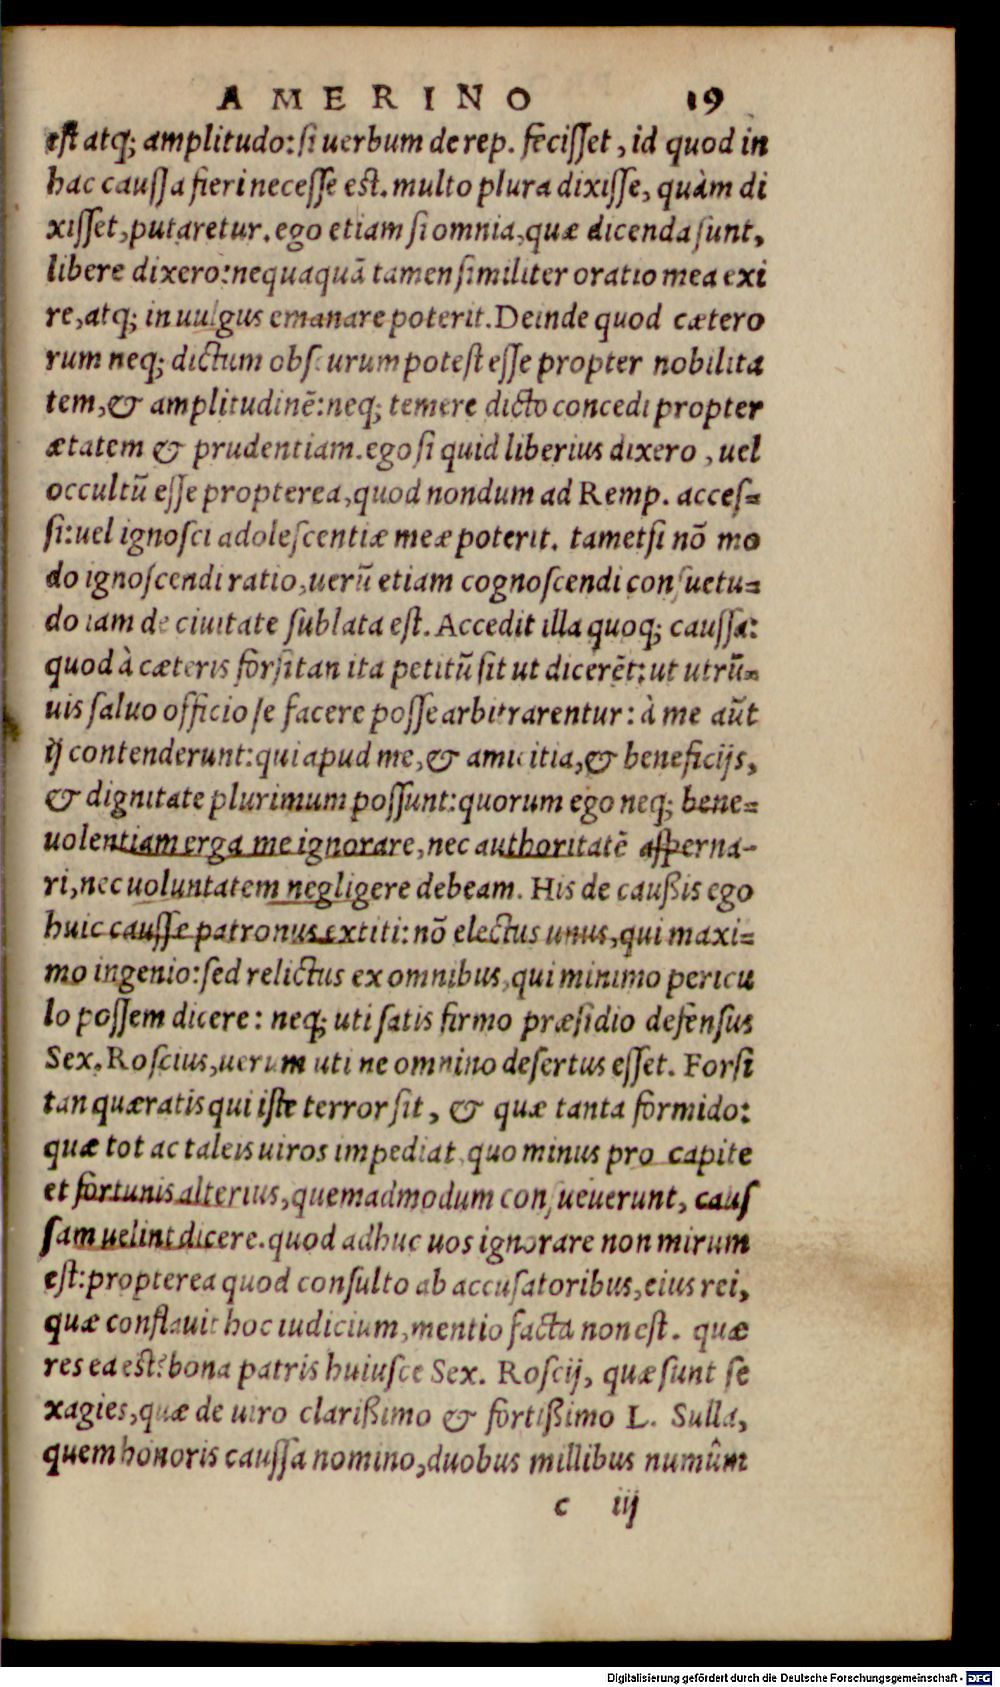 AMERINO 19
est atq; amplitudo: si uerbum de rep. fecisset, id quod in
hac caussa fieri necesse est. multo plura dixisse, quàm di
xisset, putaretur. ego etiam si omnia, quæ dicenda sunt,
libere dixero: nequaquã tamen similiter oratio mea exi
re, atq; in uulgus emanare poterit. Deinde quod cætero
rum neq; dictum obscurum potest esse propter nobilita
tem, & amplitudinẽ: neq; temere dicto concedi propter
ætatem & prudentiam. ego si quid liberius dixero, uel
occultũ esse propterea, quod nondum ad Remp. acces=
si: uel ignosci adolescentiæ meæ poterit. tametsi nõ mo
do ignoscendi ratio, uerũ etiam cognoscendi consuetu=
do iam de ciuitate sublata est. Accedit illa quoq; caussa:
quod à cæteris forsitan ita petitũ sit ut dicerẽt: ut utrũ=
uis saluo officio se facere posse arbitrarentur: à me aũt
ij contenderunt: qui apud me, & amicitia, & beneficijs,
& dignitate plurimum possunt: quorum ego neq; bene=
uolentiam erga me ignorare, nec authoritatẽ asperna-
ri, nec uoluntatem negligere debeam. His de caußis ego
huic caussæ patronus extiti: nõ electus unus, qui maxi=
mo ingenio: sed relictus ex omnibus, qui minimo pericu
lo possem dicere: neq; uti satis firmo præsidio defensus
Sex. Roscius, uerum uti ne omnino desertus esset. Forsi
tan quæratis qui iste terror sit, & quæ tanta formido:
quæ tot ac taleis uiros impediat, quo minus pro capite
et fortunis alterius, quemadmodum consueuerunt, caus
sam uelint dicere. quod adhuc uos ignorare non mirum
est: propterea quod consulto ab accusatoribus, eius rei,
quæ conflauit hoc iudicium, mentio facta non est. quæ
res ea est? bona patris huiusce Sex. Roscij, quæ sunt se
xagies, quæ de uiro clarißimo & fortißimo L. Sulla,
quem honoris caussa nomino, duobus millibus numûm
c iij
Digitalisierung gefördert durch die Deutsche Forschungsgemeinschaft - DFG